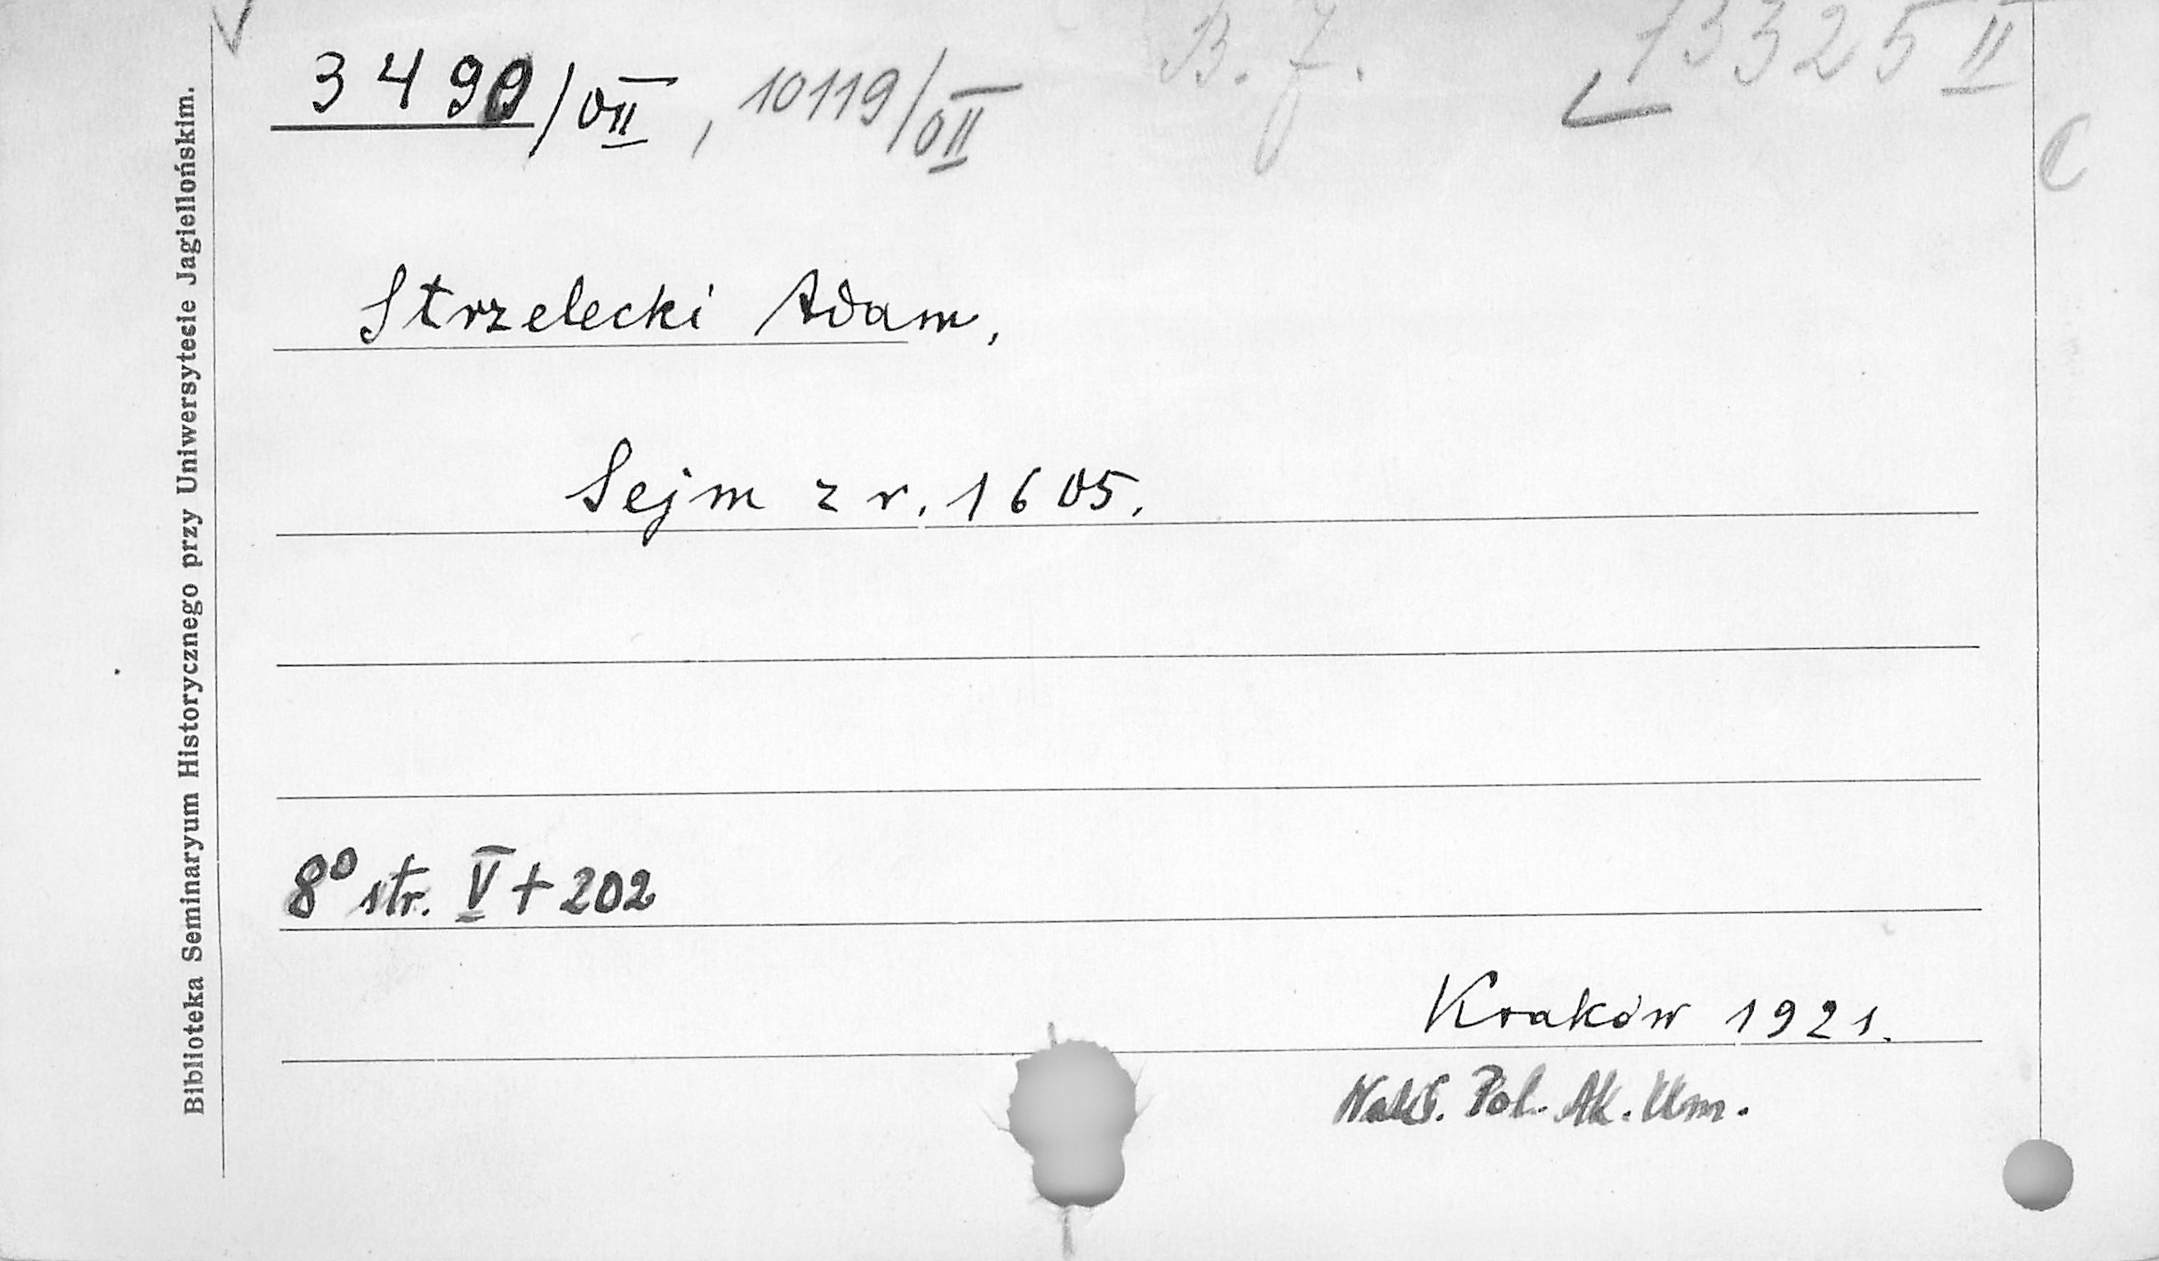 3490/OII, 10119/OII B.J. 13325 II
C
Strzelecki Adam,
Sejm z r. 1605.
8º str. V + 202
Kraków 1921.
Nakł. Pol. Ak. Um.
Biblioteka Seminaryum Historycznego przy Uniwersytecie Jagiellońskim.